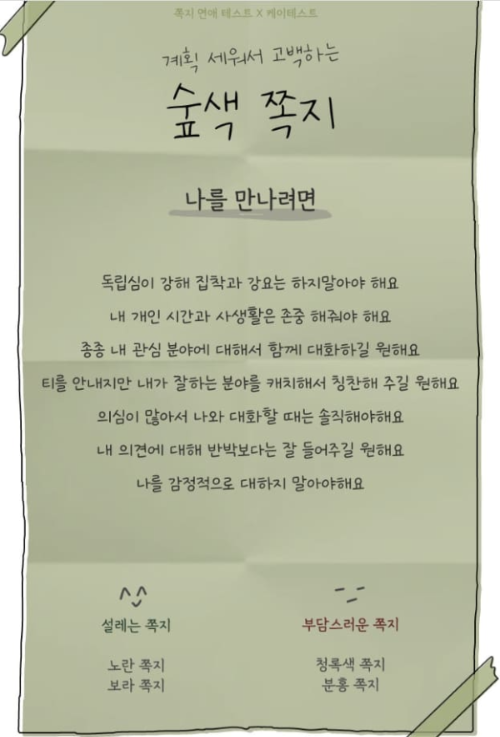 쪽지 연애 테스트 X 케이테스트
계획 세워서 고백하는
숲색 쪽지
나를 만나려면
독립심이 강해 집착과 강요는 하지말아야 해요
내 개인 시간과 사생활은 존중 해줘야 해요
종종 내 관심 분야에 대해서 함께 대화하길 원해요
티를 안내지만 내가 잘하는 분야를 캐치해서 칭찬해 주길 원해요
의심이 많아서 나와 대화할 때는 솔직해야해요
내 의견에 대해 반박보다는 잘 들어주길 원해요
나를 감정적으로 대하지 말아야해요
설레는 쪽지
부담스러운 쪽지
노란 쪽지
청록색 쪽지
보라 쪽지
분홍 쪽지